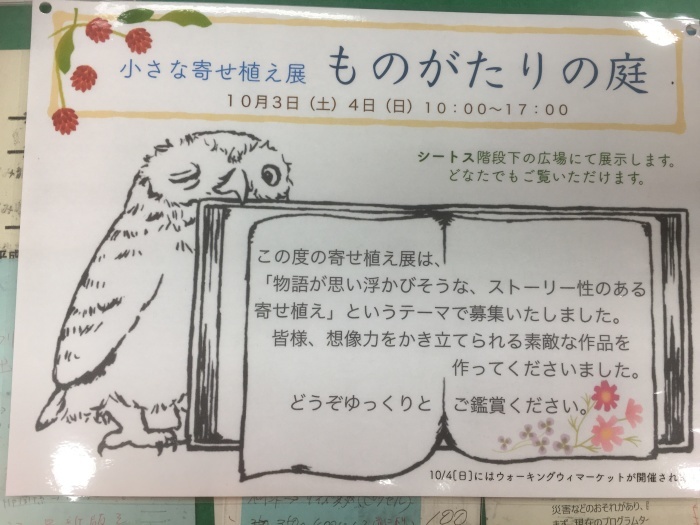 小さな寄せ植え展 ものがたりの庭
10月3日（土）4日（日）10：00〜17：00
シートス階段下の広場にて展示します。
どなたでもご覧いただけます。
この度の寄せ植え展は、
「物語が思い浮かびそうな、ストーリー性のある
寄せ植え」というテーマで募集いたしました。
皆様、想像力をかき立てられる素敵な作品を
作ってくださいました。
どうぞゆっくりと ご鑑賞ください。
10/4[日]にはウォーキングウィマーケットが開催され
災害などのおそれがあり、
まず、現在のプログラムタ
100